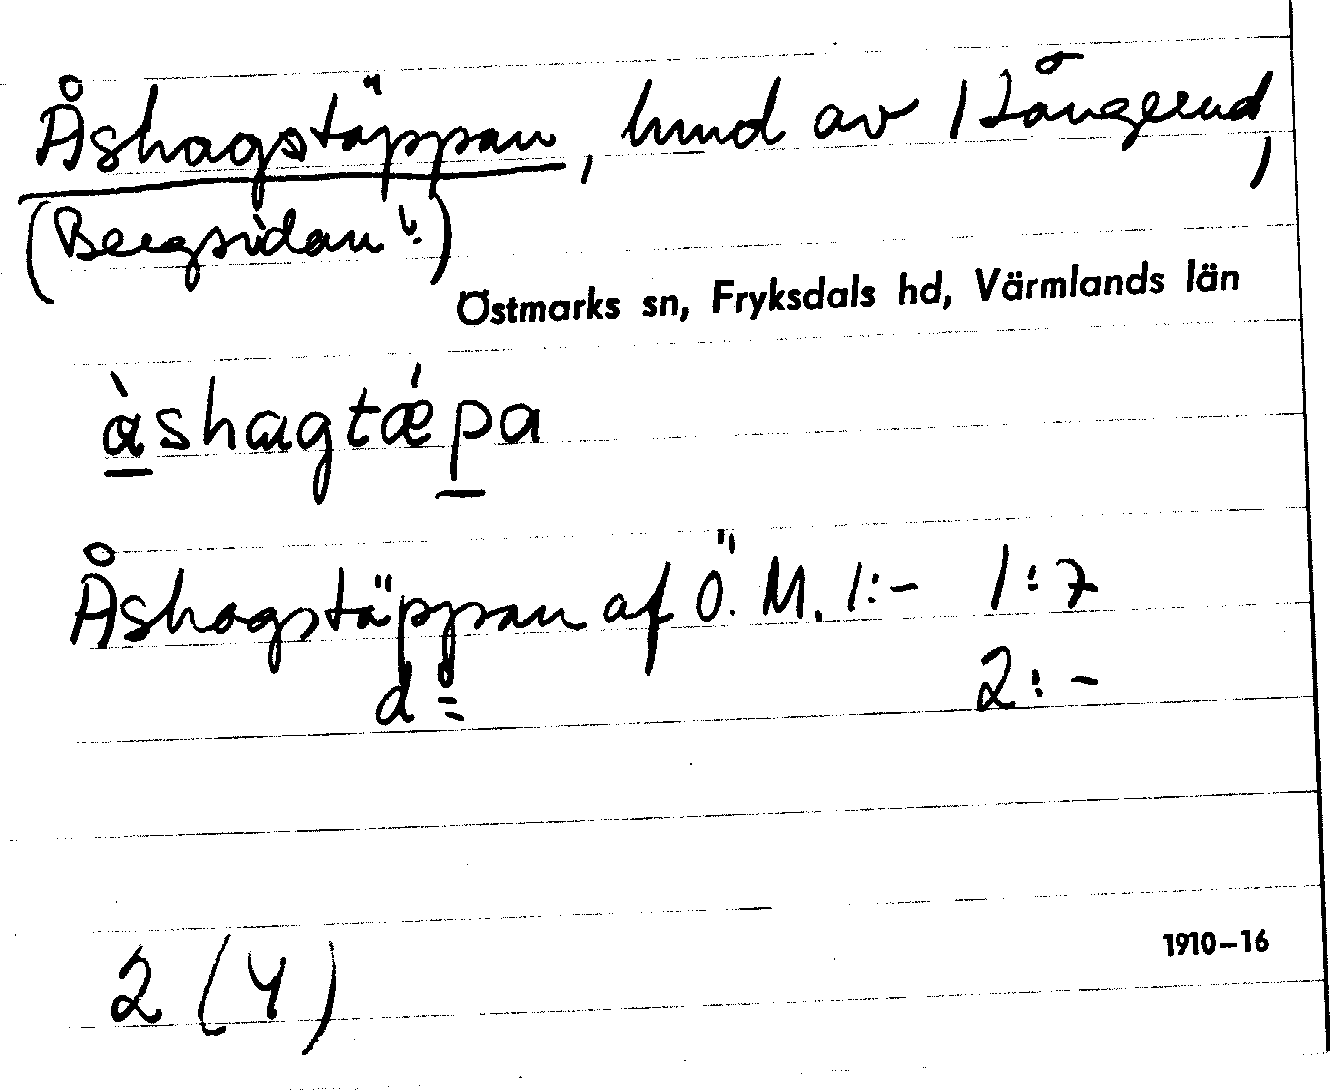 Åshagstäppan, lund av 1 Långerud,
(Bergsidan".)
Östmarks sn, Fryksdals hd, Värmlands län
àshagtǽpa
Åshagstäppan af Ö. M. 1:- 1:7
d = 2:-
1910–16
2 (4)